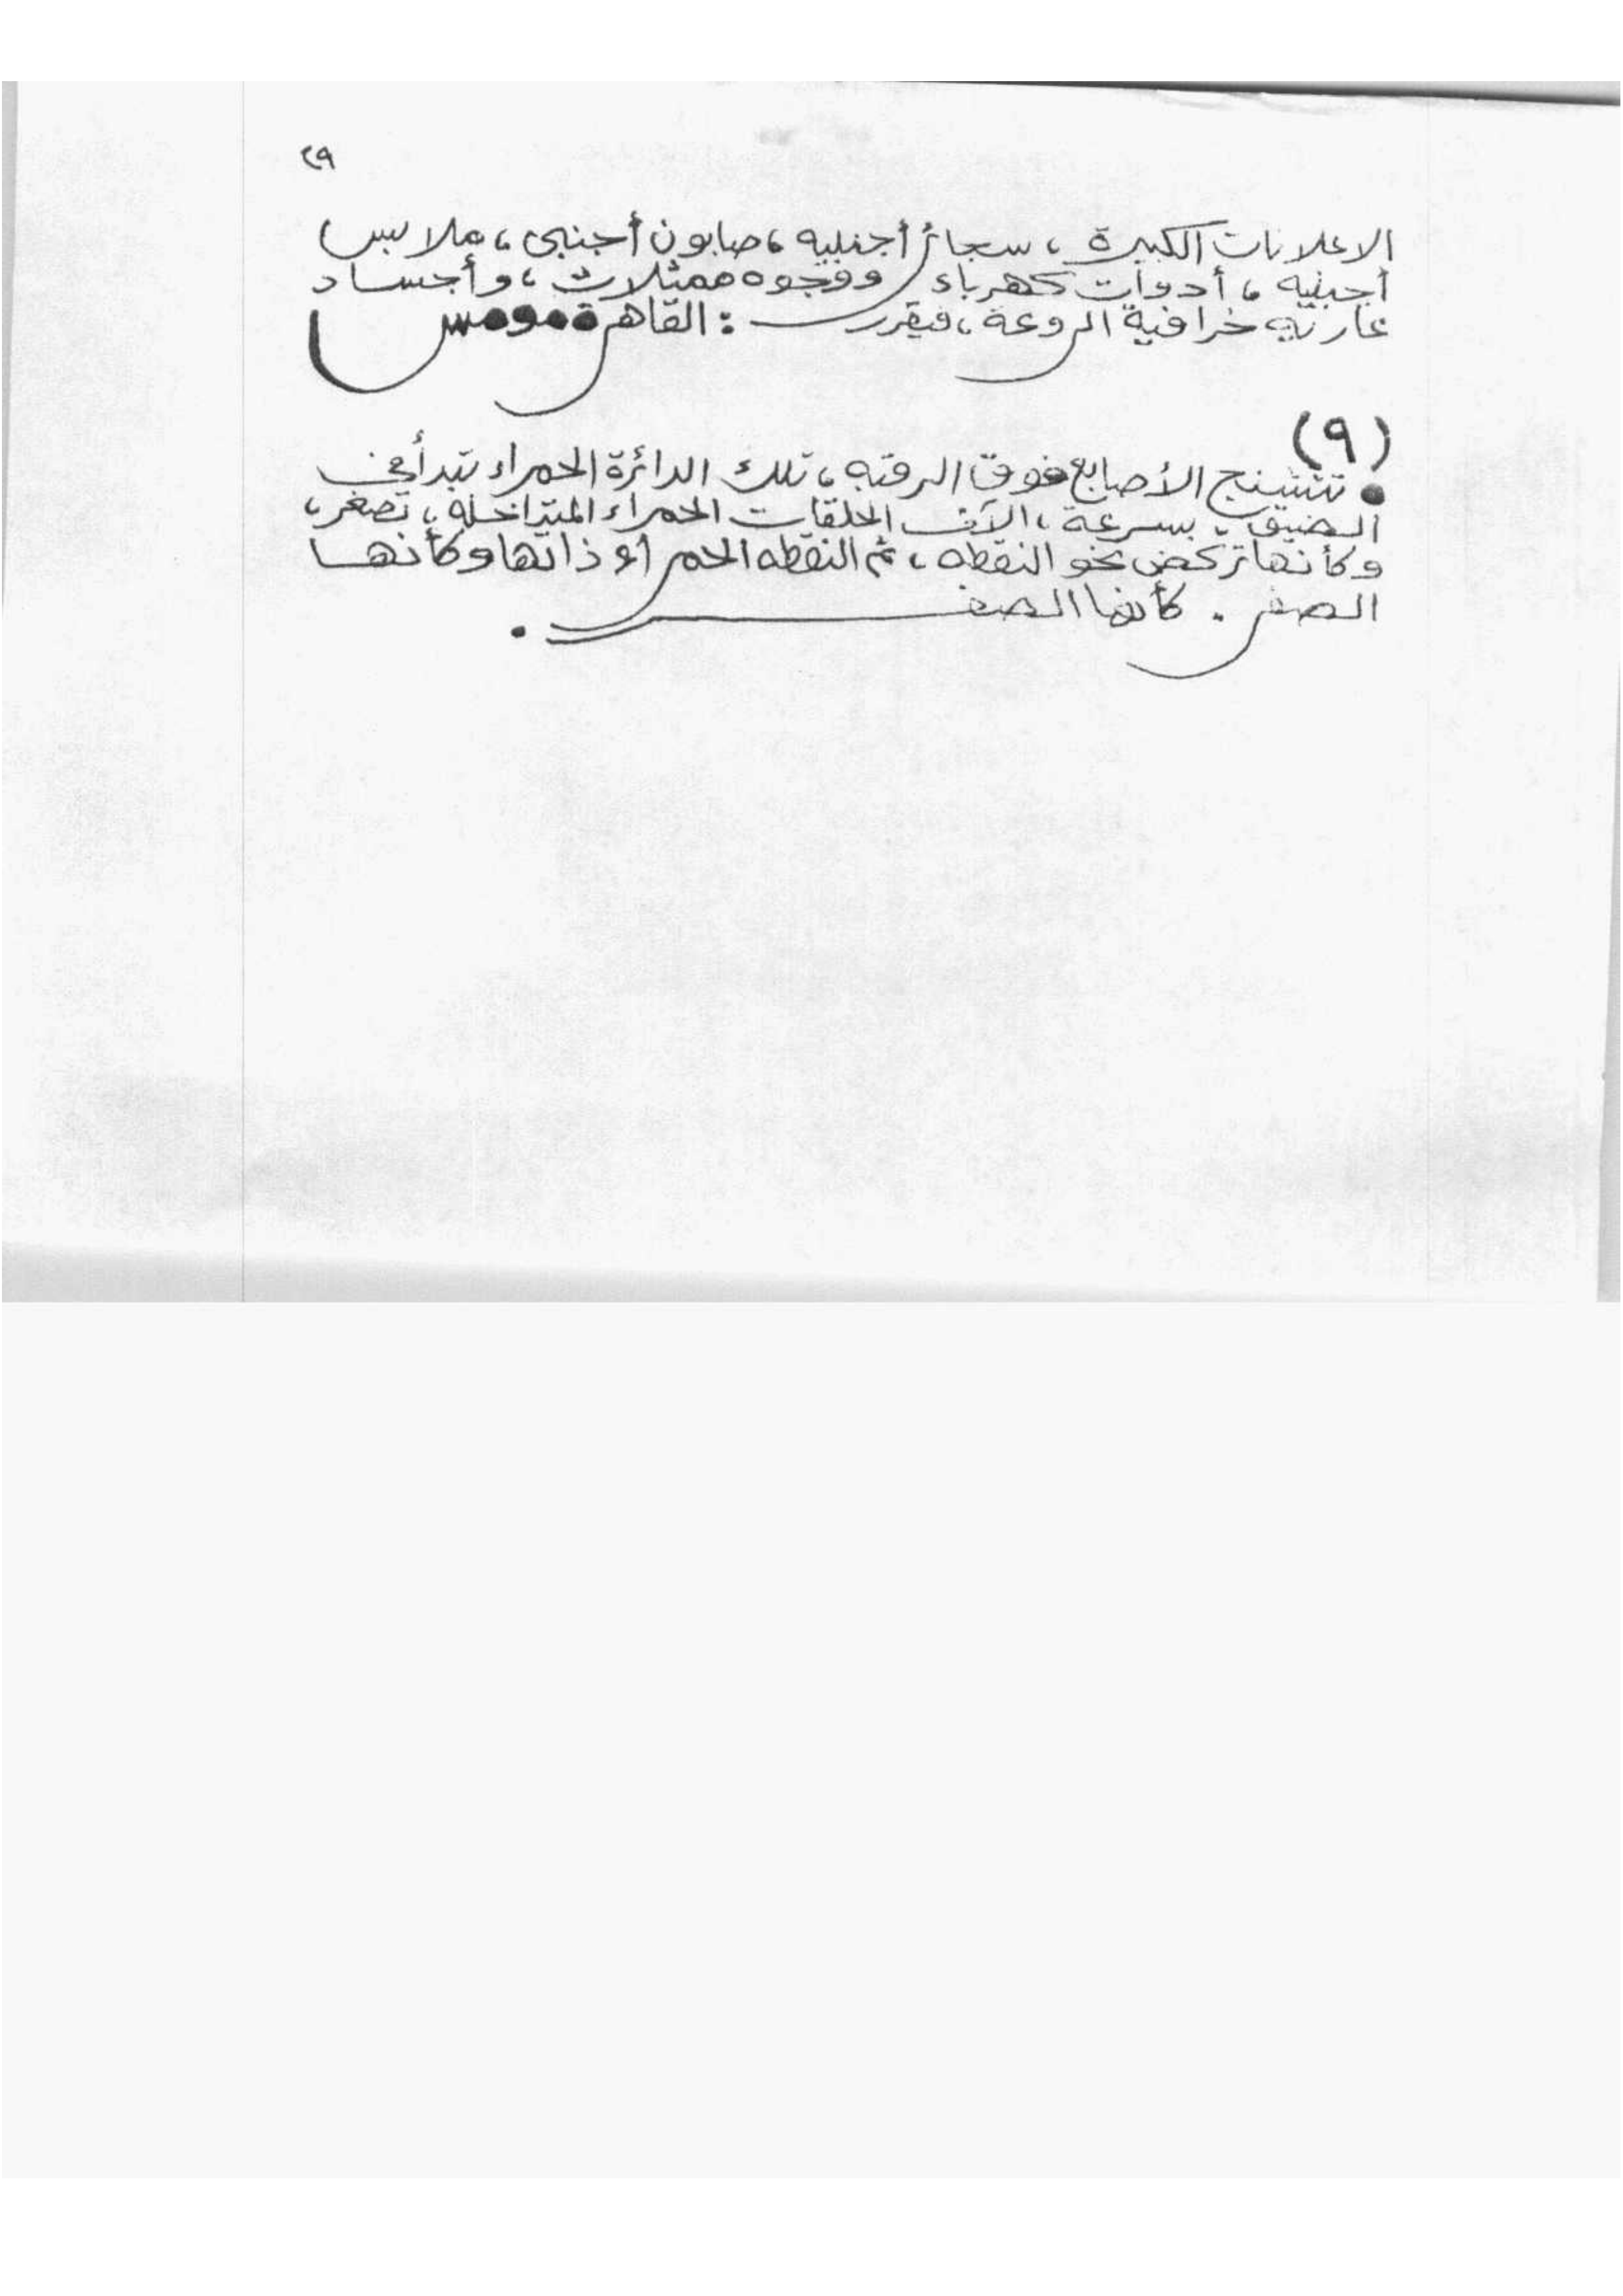 ٢٩
الاعلانات الكبيرة ، سجائر أجنبيه ، صابون أجنبى ، ملابس
أجنبيه ، أدوات كهرباء ووجوه ممثلات ، وأجساد
عاريه خرافية الروعة ، فيقرر : القاهرة مومس
(٩)
● تتشنج الأصابع فوق الرقبه ، تلك الدائرة الحمراء تبدأ في
الضيق ، بسرعة ، الآف الحلقات الحمراء المتداخله ، تصغر ،
وكأنها تركض نحو النقطه ، ثم النقطه الحمراء ذاتها وكأنها
الصفر . كأنها الصفر .